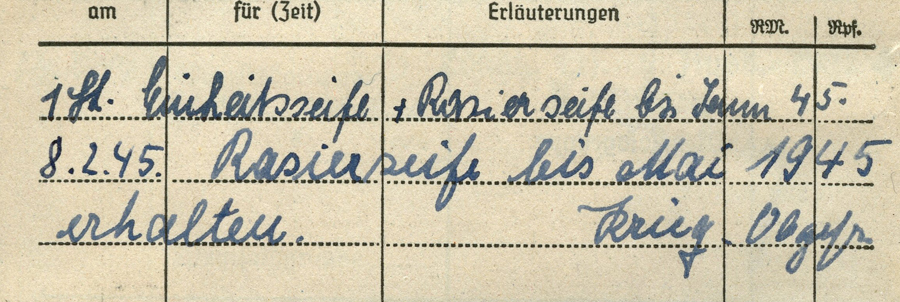 am für (Zeit) Erläuterungen RM. Rpf.
1 St. Einheitsseife + Rasierseife bis Jann 45.
8.2.45. Rasierseife bis Mai 1945
erhalten. Krieg. Obgefr.